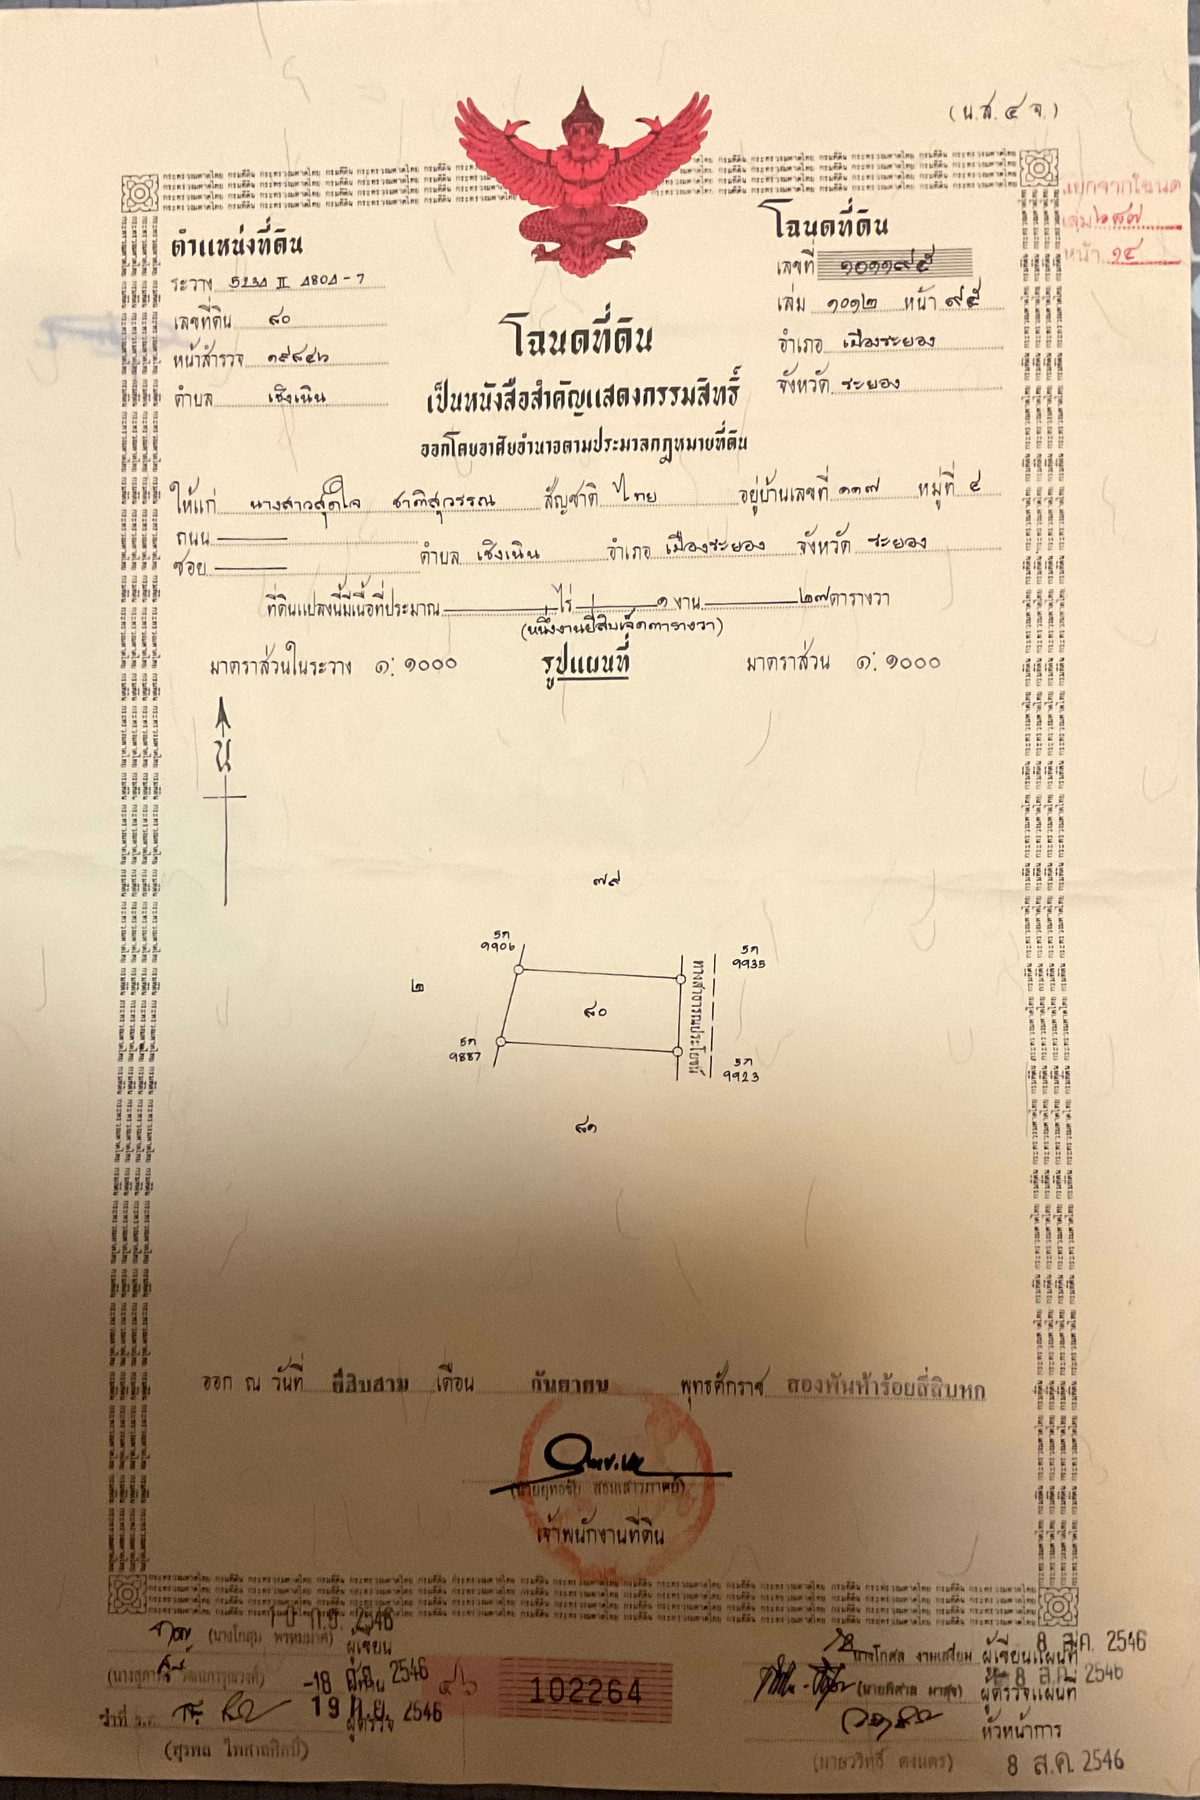 (น.ส.๔ จ.)
แยกจากโฉนด
เล่ม ๒๘๗
หน้า ๑๔
ตำแหน่งที่ดิน
ระวาง 5234 II 4804-7
เลขที่ดิน ๘๐
หน้าสำรวจ ๑๙๘๔๖
ตำบล เชิงเนิน
โฉนดที่ดิน
เลขที่ ๑๐๑๑๙๕
เล่ม ๑๐๑๒ หน้า ๙๕
อำเภอ เมืองระยอง
จังหวัด ระยอง
โฉนดที่ดิน
เป็นหนังสือสำคัญแสดงกรรมสิทธิ์
ออกโดยอาศัยอำนาจตามประมวลกฎหมายที่ดิน
ให้แก่ นางสาวสุดใจ ชาติสุวรรณ สัญชาติ ไทย อยู่บ้านเลขที่ ๑๑๗ หมู่ที่ ๔
ถนน
ซอย ตำบล เชิงเนิน อำเภอ เมืองระยอง จังหวัด ระยอง
ที่ดินแปลงนี้มีเนื้อที่ประมาณ ไร่ ๑ งาน ๒๗ ตารางวา
(หนึ่งงานยี่สิบเจ็ดตารางวา)
มาตราส่วนในระวาง ๑:๑๐๐๐ รูปแผนที่ มาตราส่วน ๑:๑๐๐๐
น
๗๙
5ก
9906
5ก
9935
๒
๘๐
ทางสาธารณประโยชน์
5ก
9887
5ก
9923
๘๑
ออก ณ วันที่ ยี่สิบสาม เดือน กันยายน พุทธศักราช สองพันห้าร้อยสี่สิบหก
เจ้าพนักงานที่ดิน
10 ก.ย. 2546
(นางโกสุม พรหมมาศ) ผู้เขียน
-18 2546
ผู้ทาน
19 ก.ย. 2546
ผู้ตรวจ
(สุรพล ไพศาลศิลป์)
๔๖ 102264
8 ส.ค. 2546
งามเสงี่ยม ผู้เขียนแผนที่
8 ส.ค. 2546
(นายพิศาล มาสุข) ผู้ตรวจแผนที่
หัวหน้าการ
8 ส.ค. 2546